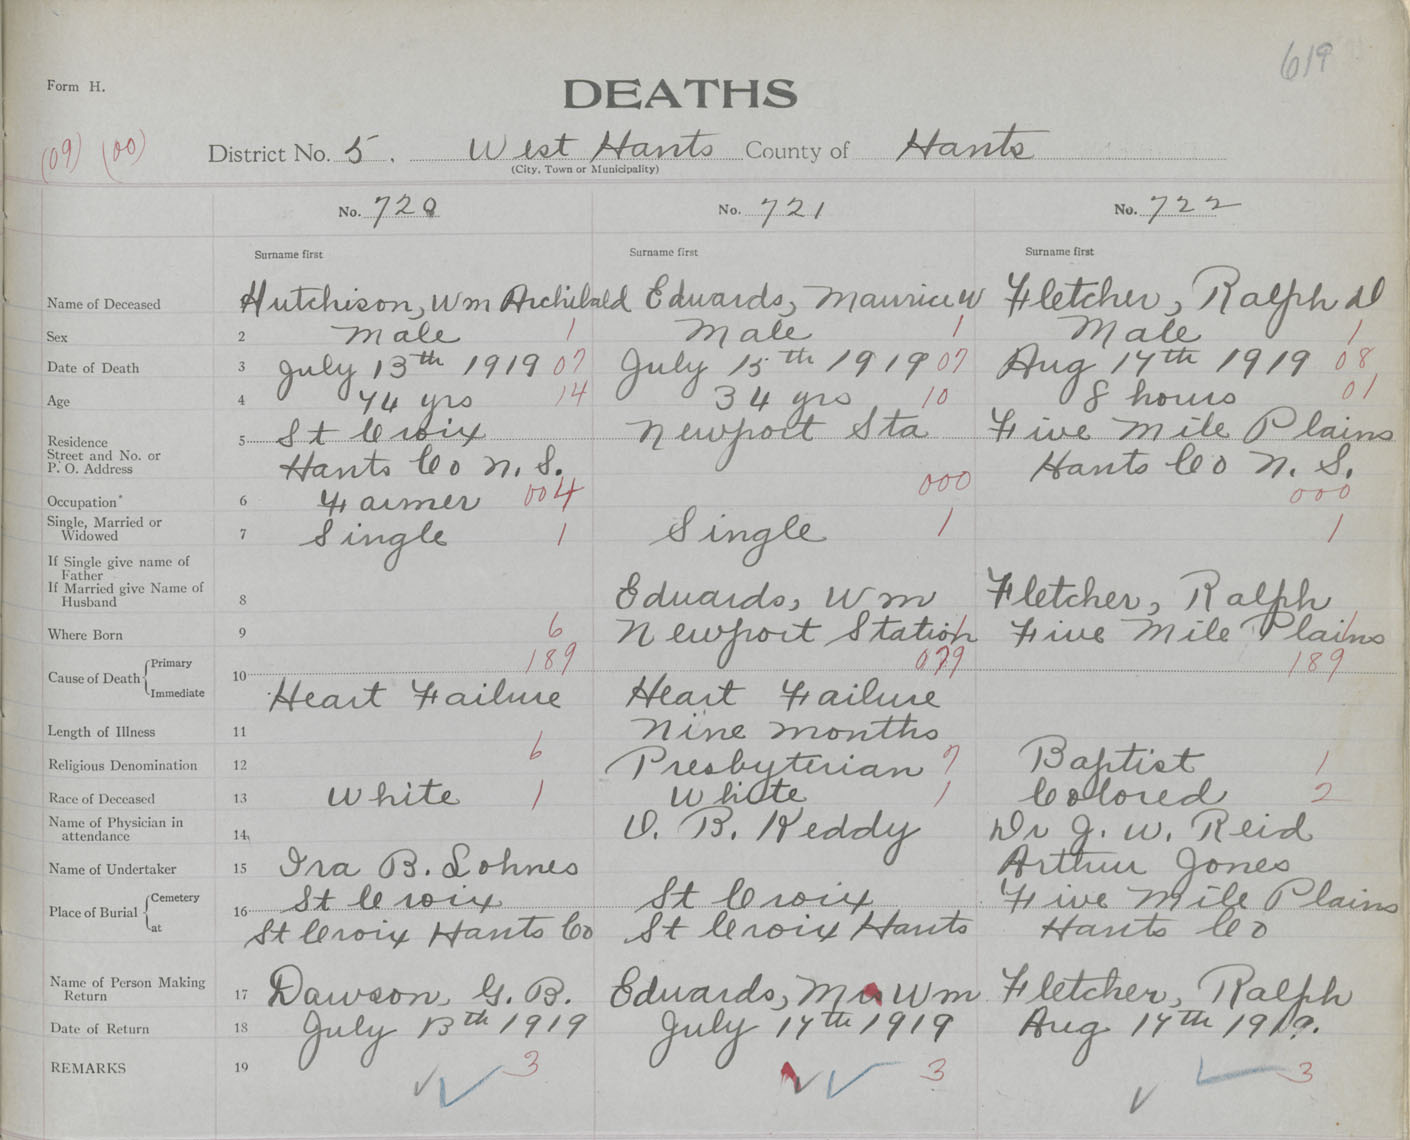 619
Form H.
DEATHS
(09) (00)
District No. 5. West Hants County of Hants
(City, Town or Municipality)
No. 720 No. 721 No. 722
Surname first Surname first Surname first
Name of Deceased Hutchison, Wm Archibald Edwards, Maurice W Fletcher, Ralph
Sex 2 Male 1 Male 1 Male 1
Date of Death 3 July 13th 1919 07 July 15th 1919 07 Aug 17th 1919 08
Age 4 74 yrs 14 34 yrs 10 8 hours 01
Residence 5 St Croix Newport Sta Five Mile Plains
Street and No. or
P. O. Address Hants Co N. S. Hants Co N. S.
Occupation* 6 Farmer 004 000 000
Single, Married or
Widowed 7 Single 1 Single 1 1
If Single give name of
Father
If Married give Name of
Husband 8 Edwards, Wm Fletcher, Ralph
Where Born 9 6 Newport Station 1 Five Mile Plains 1
Cause of Death Primary 10 189 079 189
Immediate Heart Failure Heart Failure
Length of Illness 11 Nine months
Religious Denomination 12 6 Presbyterian 7 Baptist 1
Race of Deceased 13 White 1 White 1 Colored 2
Name of Physician in
attendance 14 B. Keddy Dr J. W. Reid
Name of Undertaker 15 Ira B. Lohnes Arthur Jones
Place of Burial Cemetery 16 St Croix St Croix Five Mile Plains
at St Croix Hants Co St Croix Hants Hants Co
Name of Person Making
Return 17 Dawson, G. B. Edwards, Wm Fletcher, Ralph
Date of Return 18 July 13th 1919 July 17th 1919 Aug 17th 1919.
REMARKS 19 3 3 3